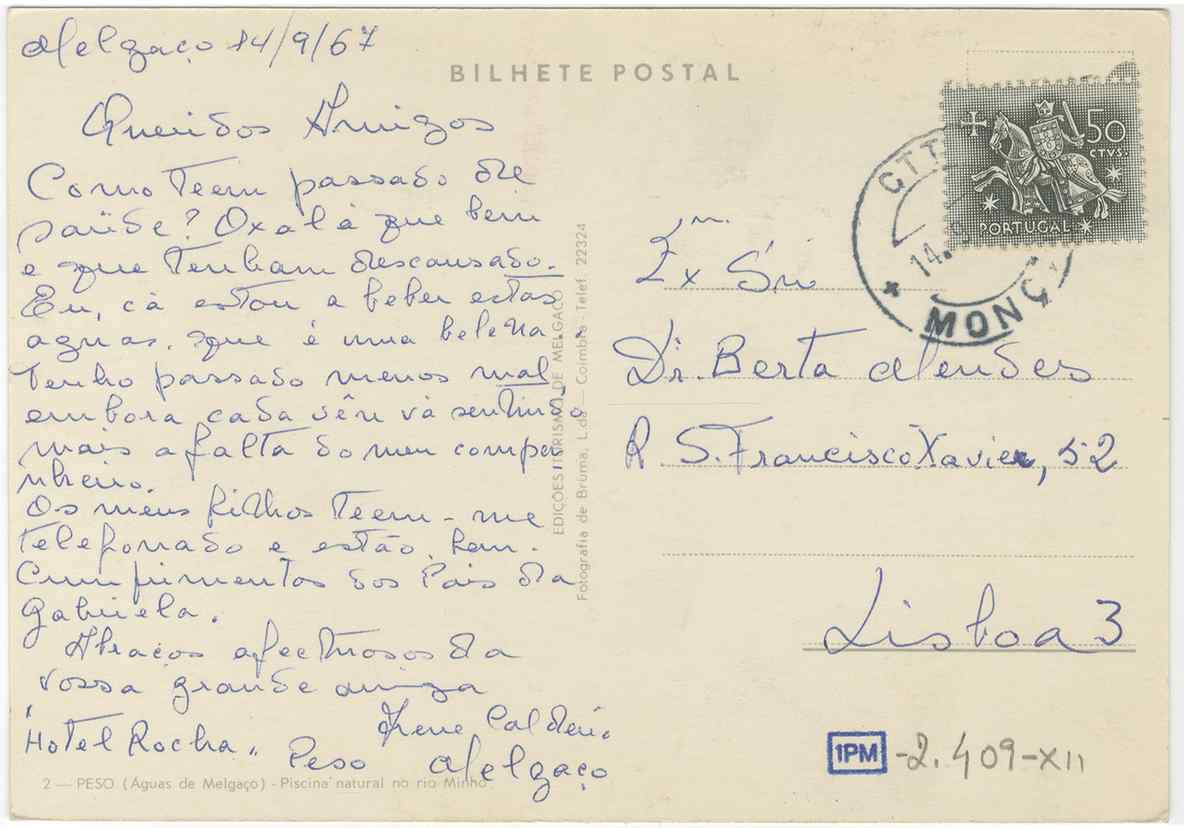 Melgaço 14/9/67
BILHETE POSTAL
Queridos Amigos
Como Teem passado de
saúde? Oxalá que bem
e que Tenham descansado.
Eu, cá estou a beber estas
aguas, que é uma beleza.
Tenho passado menos mal,
embora cada vêz vá sentindo
mais a falta do meu compa-
nheiro.
Os meus filhos Teem-me
Telefonado e estão bem.
Cumprimentos dos Pais da
Gabriela.
Abraços afectuosos da
vossa grande amiga
Irene
Hotel Rocha
Peso Melgaço
2 — PESO (Águas de Melgaço) - Piscina natural no rio Minho
EDIÇÕES TURISMO DE MELGAÇO
Fotografia de Bruma, L.da — Coimbra - Telef. 22324
50
CTVS.
PORTUGAL
CTT
14.
MONÇ
Ex Sra
Dr. Berta Mendes
R. S. Francisco Xavier, 52
Lisboa 3
1PM -2.409-XII